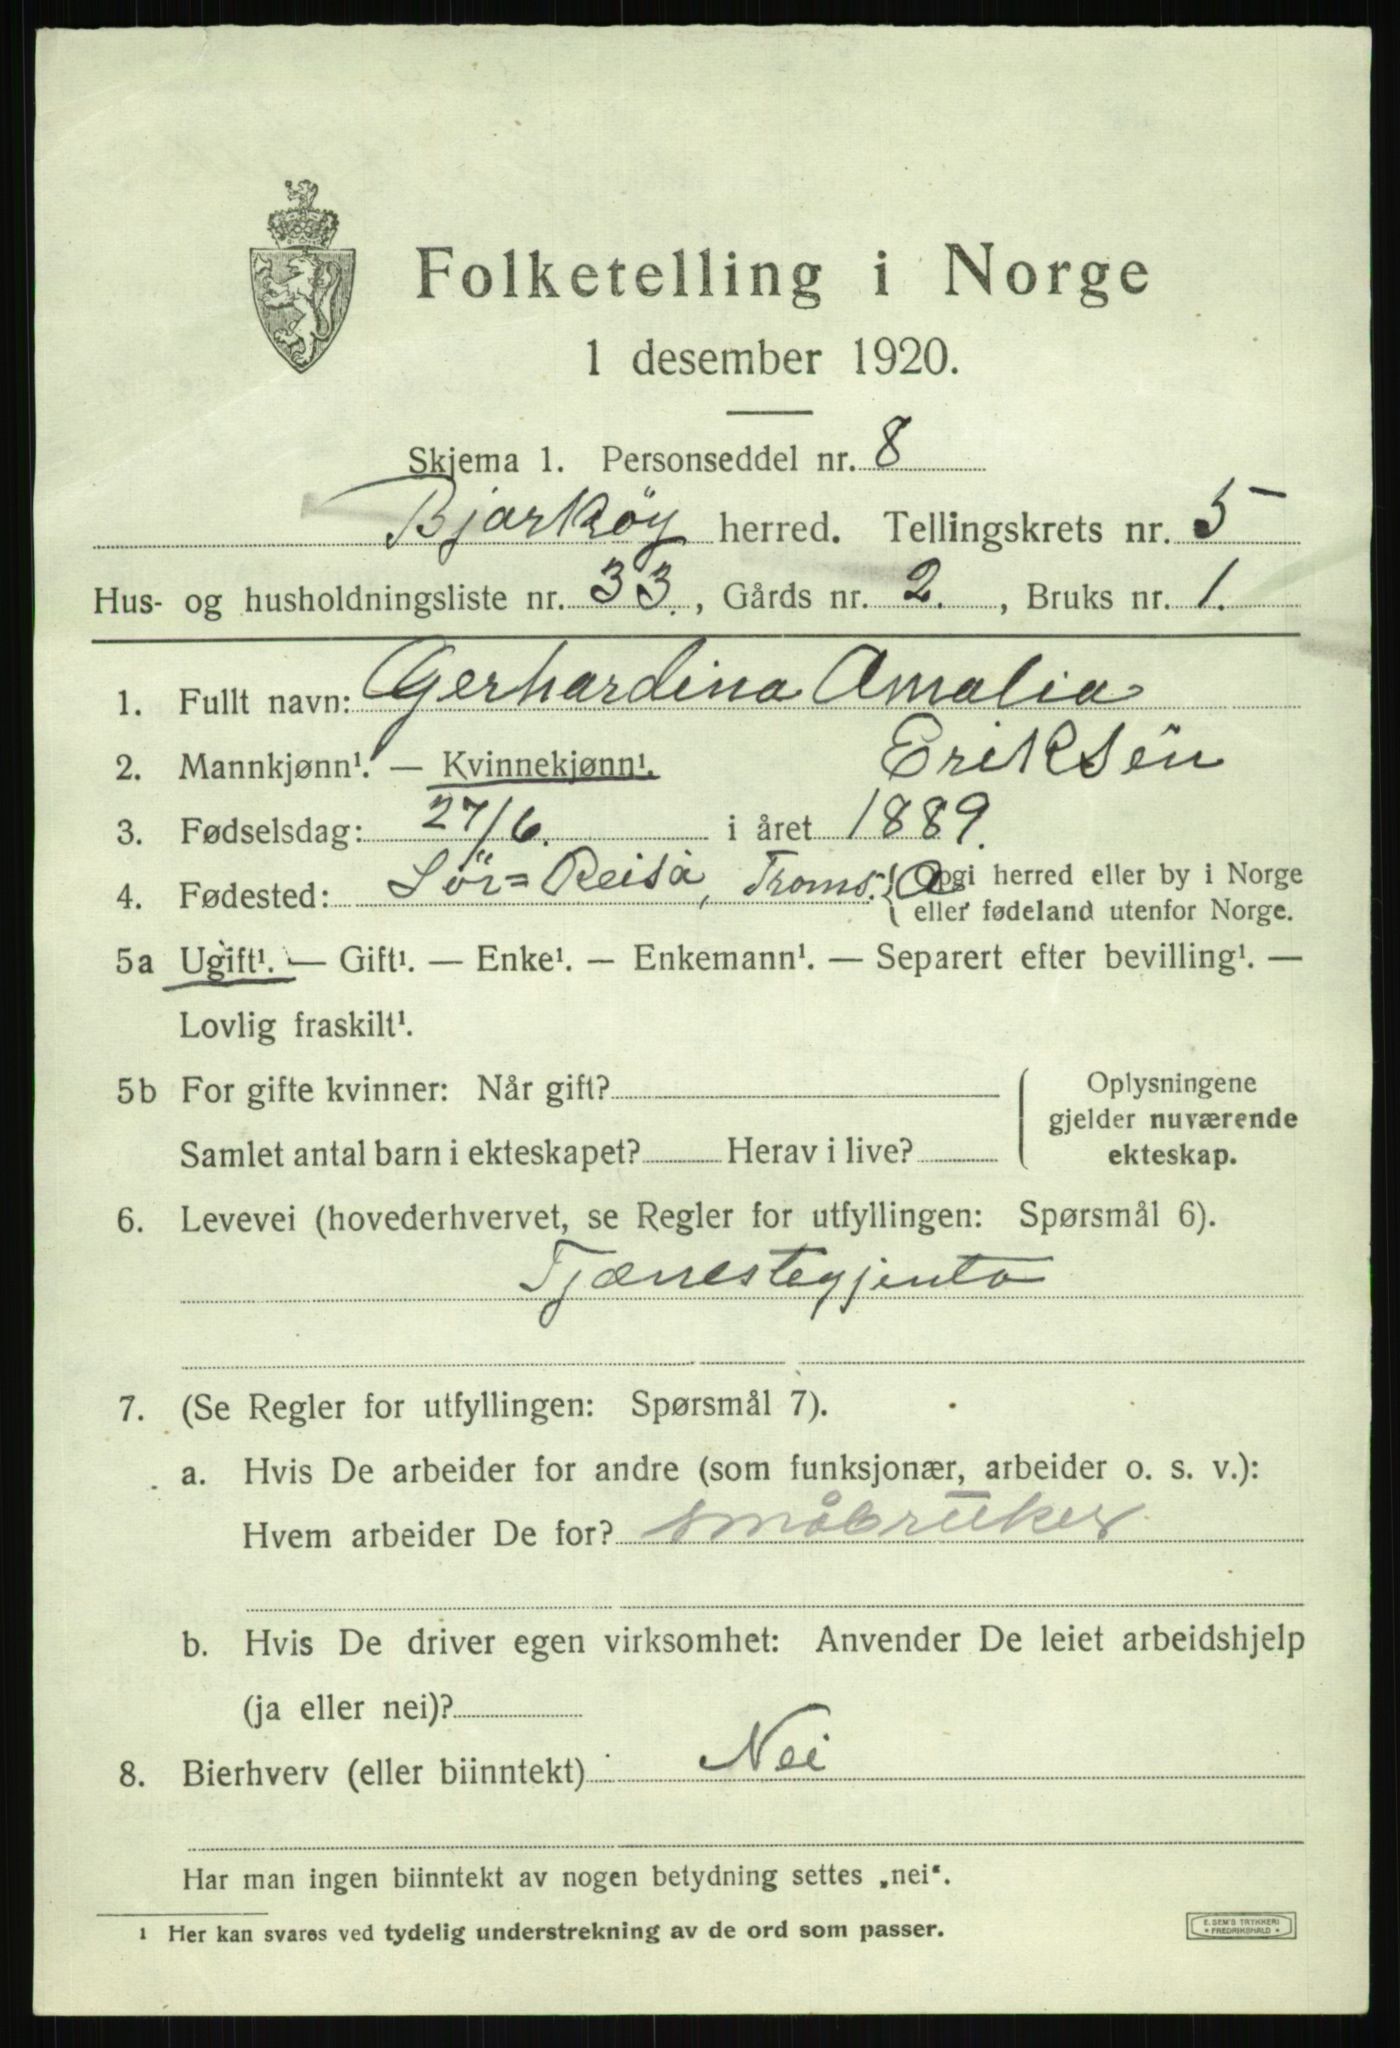 Folketelling i Norge
1 desember 1920.
Skjema 1. Personseddel nr. 8
Bjarköy herred. Tellingskrets nr. 5
Hus- og husholdningsliste nr. 33., Gårds nr. 2., Bruks nr. 1.
1. Fullt navn: Gerhardina Amalia
Eriksen
2. Mannkjønn¹. — Kvinnekjønn¹.
3. Fødselsdag: 27/6. i året 1889.
4. Fødested: Sör=Reisa, Troms. A { Opgi herred eller by i Norge
eller fødeland utenfor Norge.
5a Ugift¹. — Gift¹. — Enke¹. — Enkemann¹. — Separert efter bevilling¹. —
Lovlig fraskilt¹.
5b For gifte kvinner: Når gift?
Samlet antal barn i ekteskapet? Herav i live?
Oplysningene
gjelder nuværende
ekteskap.
6. Levevei (hovederhvervet, se Regler for utfyllingen: Spørsmål 6).
Tjænestegjenta
7. (Se Regler for utfyllingen: Spørsmål 7).
a. Hvis De arbeider for andre (som funksjonær, arbeider o. s. v.):
Hvem arbeider De for? småbruker
b. Hvis De driver egen virksomhet: Anvender De leiet arbeidshjelp
(ja eller nei)?
8. Bierhverv (eller biinntekt) Nei
Har man ingen biinntekt av nogen betydning settes „nei“.
¹ Her kan svares ved tydelig understrekning av de ord som passer.
E. SEM'S TRYKKERI
* FREDRIKSHALD *